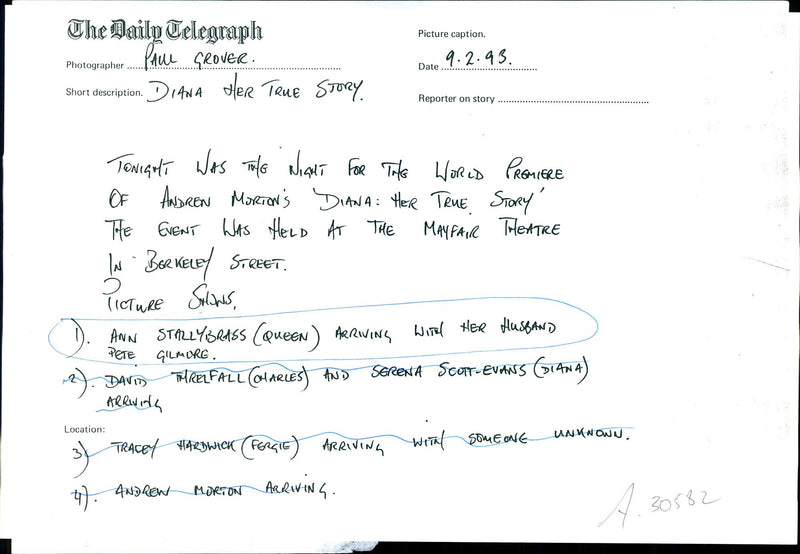 The Daily Telegraph
Picture caption.
Photographer PAUL GROVER.
Date 9.2.93.
Short description. DIANA HER TRUE STORY.
Reporter on story
TONIGHT WAS THE NIGHT FOR THE WORLD PREMIERE
OF ANDREW MORTON'S 'DIANA: HER TRUE STORY'
THE EVENT WAS HELD AT THE MAYFAIR THEATRE
IN BERKELEY STREET.
PICTURE SHOWS,
1). ANN STALLYBRASS (QUEEN) ARRIVING WITH HER HUSBAND
PETE GILMORE.
2). DAVID THRELFALL (CHARLES) AND SERENA SCOTT-EVANS (DIANA)
ARRIVING
Location:
3) TRACEY HARDWICK (FERGIE) ARRIVING WITH SOMEONE UNKNOWN.
4). ANDREW MORTON ARRIVING.
A. 30582